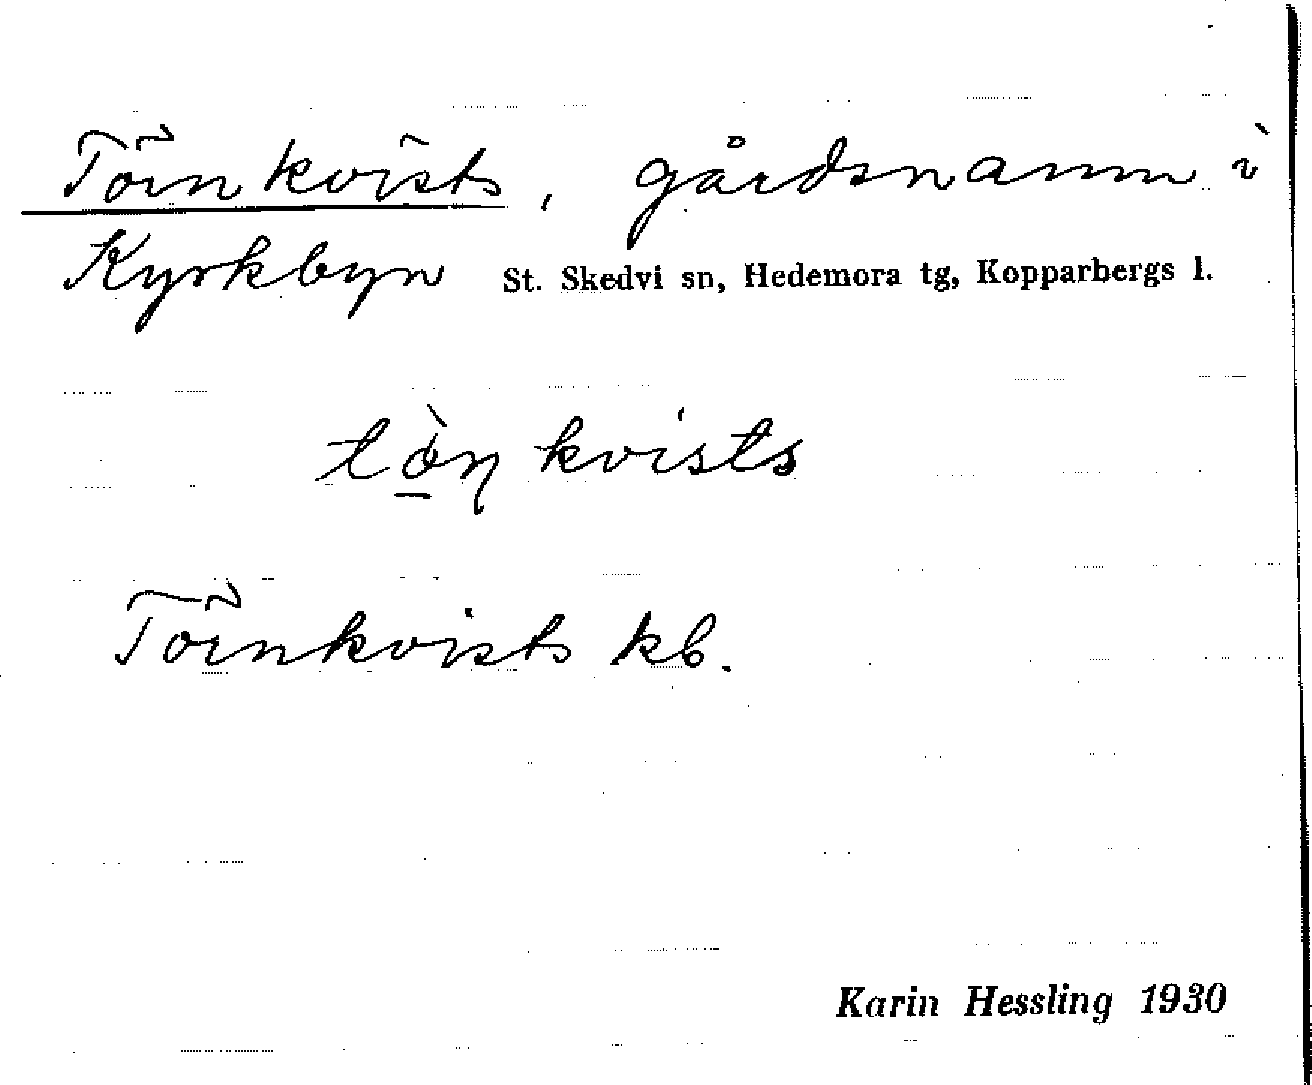 Törnkvists, gårdsnamn i
Kyrkbyn St. Skedvi sn, Hedemora tg, Kopparbergs l.
tö̀ṇkvists
Törnkvists kb.
Karin Hessling 1930